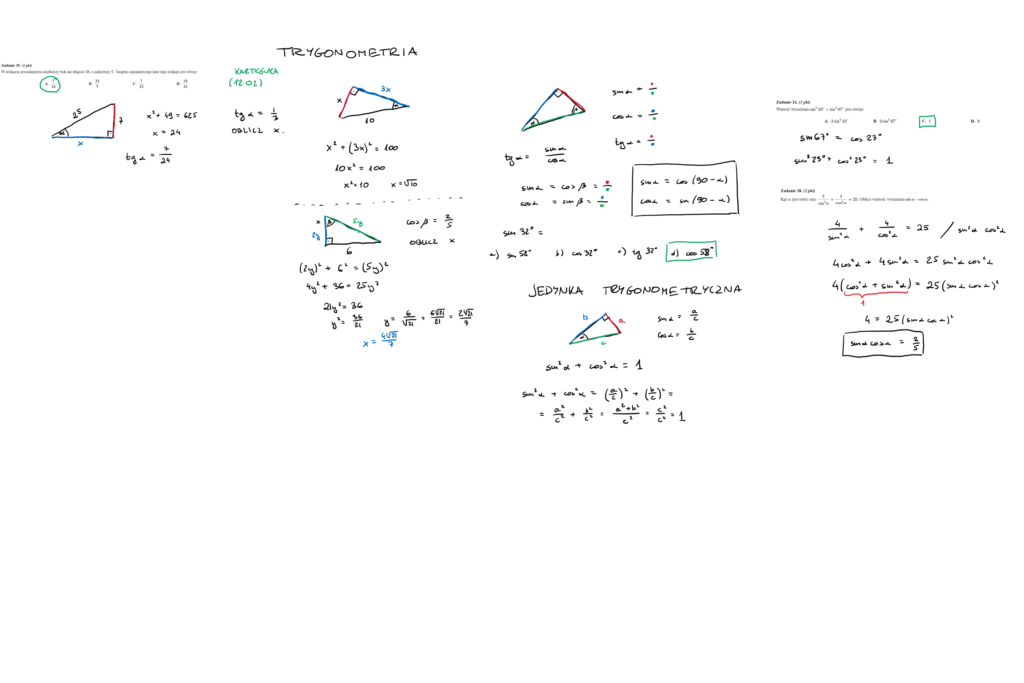 TRYGONOMETRIA
Zadanie 35. (1 pkt)
W trójkącie prostokątnym najdłuższy bok ma długość 25, a najkrótszy 7. Tangens najmniejszego kąta tego trójkąta jest równy
A. 7/24 B. 24/7 C. 7/25 D. 24/25
25
7
α
x
x² + 49 = 625
x = 24
tg α = 7/24
KARTKÓWKA
(12.02)
tg α = 1/3
OBLICZ x.
x
3x
α
10
x² + (3x)² = 100
10x² = 100
x² = 10 x = √10
x
β
2y
5y
6
cos β = 2/5
OBLICZ x
(2y)² + 6² = (5y)²
4y² + 36 = 25y²
21y² = 36
y² = 36/21 y = 6/√21 = 6√21/21 = 2√21/7
x = 4√21/7
sin α =
cos α =
tg α =
tg α = sin α/cos α
sin α = cos β =
cos α = sin β =
sin α = cos (90 - α)
cos α = sin (90 - α)
sin 32° =
a) sin 58° b) cos 32° c) tg 32° d) cos 58°
JEDYNKA TRYGONOMETRYCZNA
b
a
α
c
sin α = a/c
cos α = b/c
sin² α + cos² α = 1
sin² α + cos² α = (a/c)² + (b/c)² =
= a²/c² + b²/c² = a²+b²/c² = c²/c² = 1
Zadanie 24. (1 pkt)
Wartość wyrażenia sin² 23° + sin² 67° jest równa:
A. 2 sin² 23° B. 2 sin² 67° C. 1 D. 0
sin 67° = cos 23°
sin² 23° + cos² 23° = 1
Zadanie 30. (2 pkt)
Kąt α jest ostry oraz 4/sin²α + 4/cos²α = 25. Oblicz wartość wyrażenia sin α · cos α.
4/sin²α + 4/cos²α = 25 / sin²α cos²α
4cos²α + 4sin²α = 25 sin²α cos²α
4(cos²α + sin²α) = 25 (sin α cos α)²
1
4 = 25 (sin α cos α)²
sin α cos α = 2/5